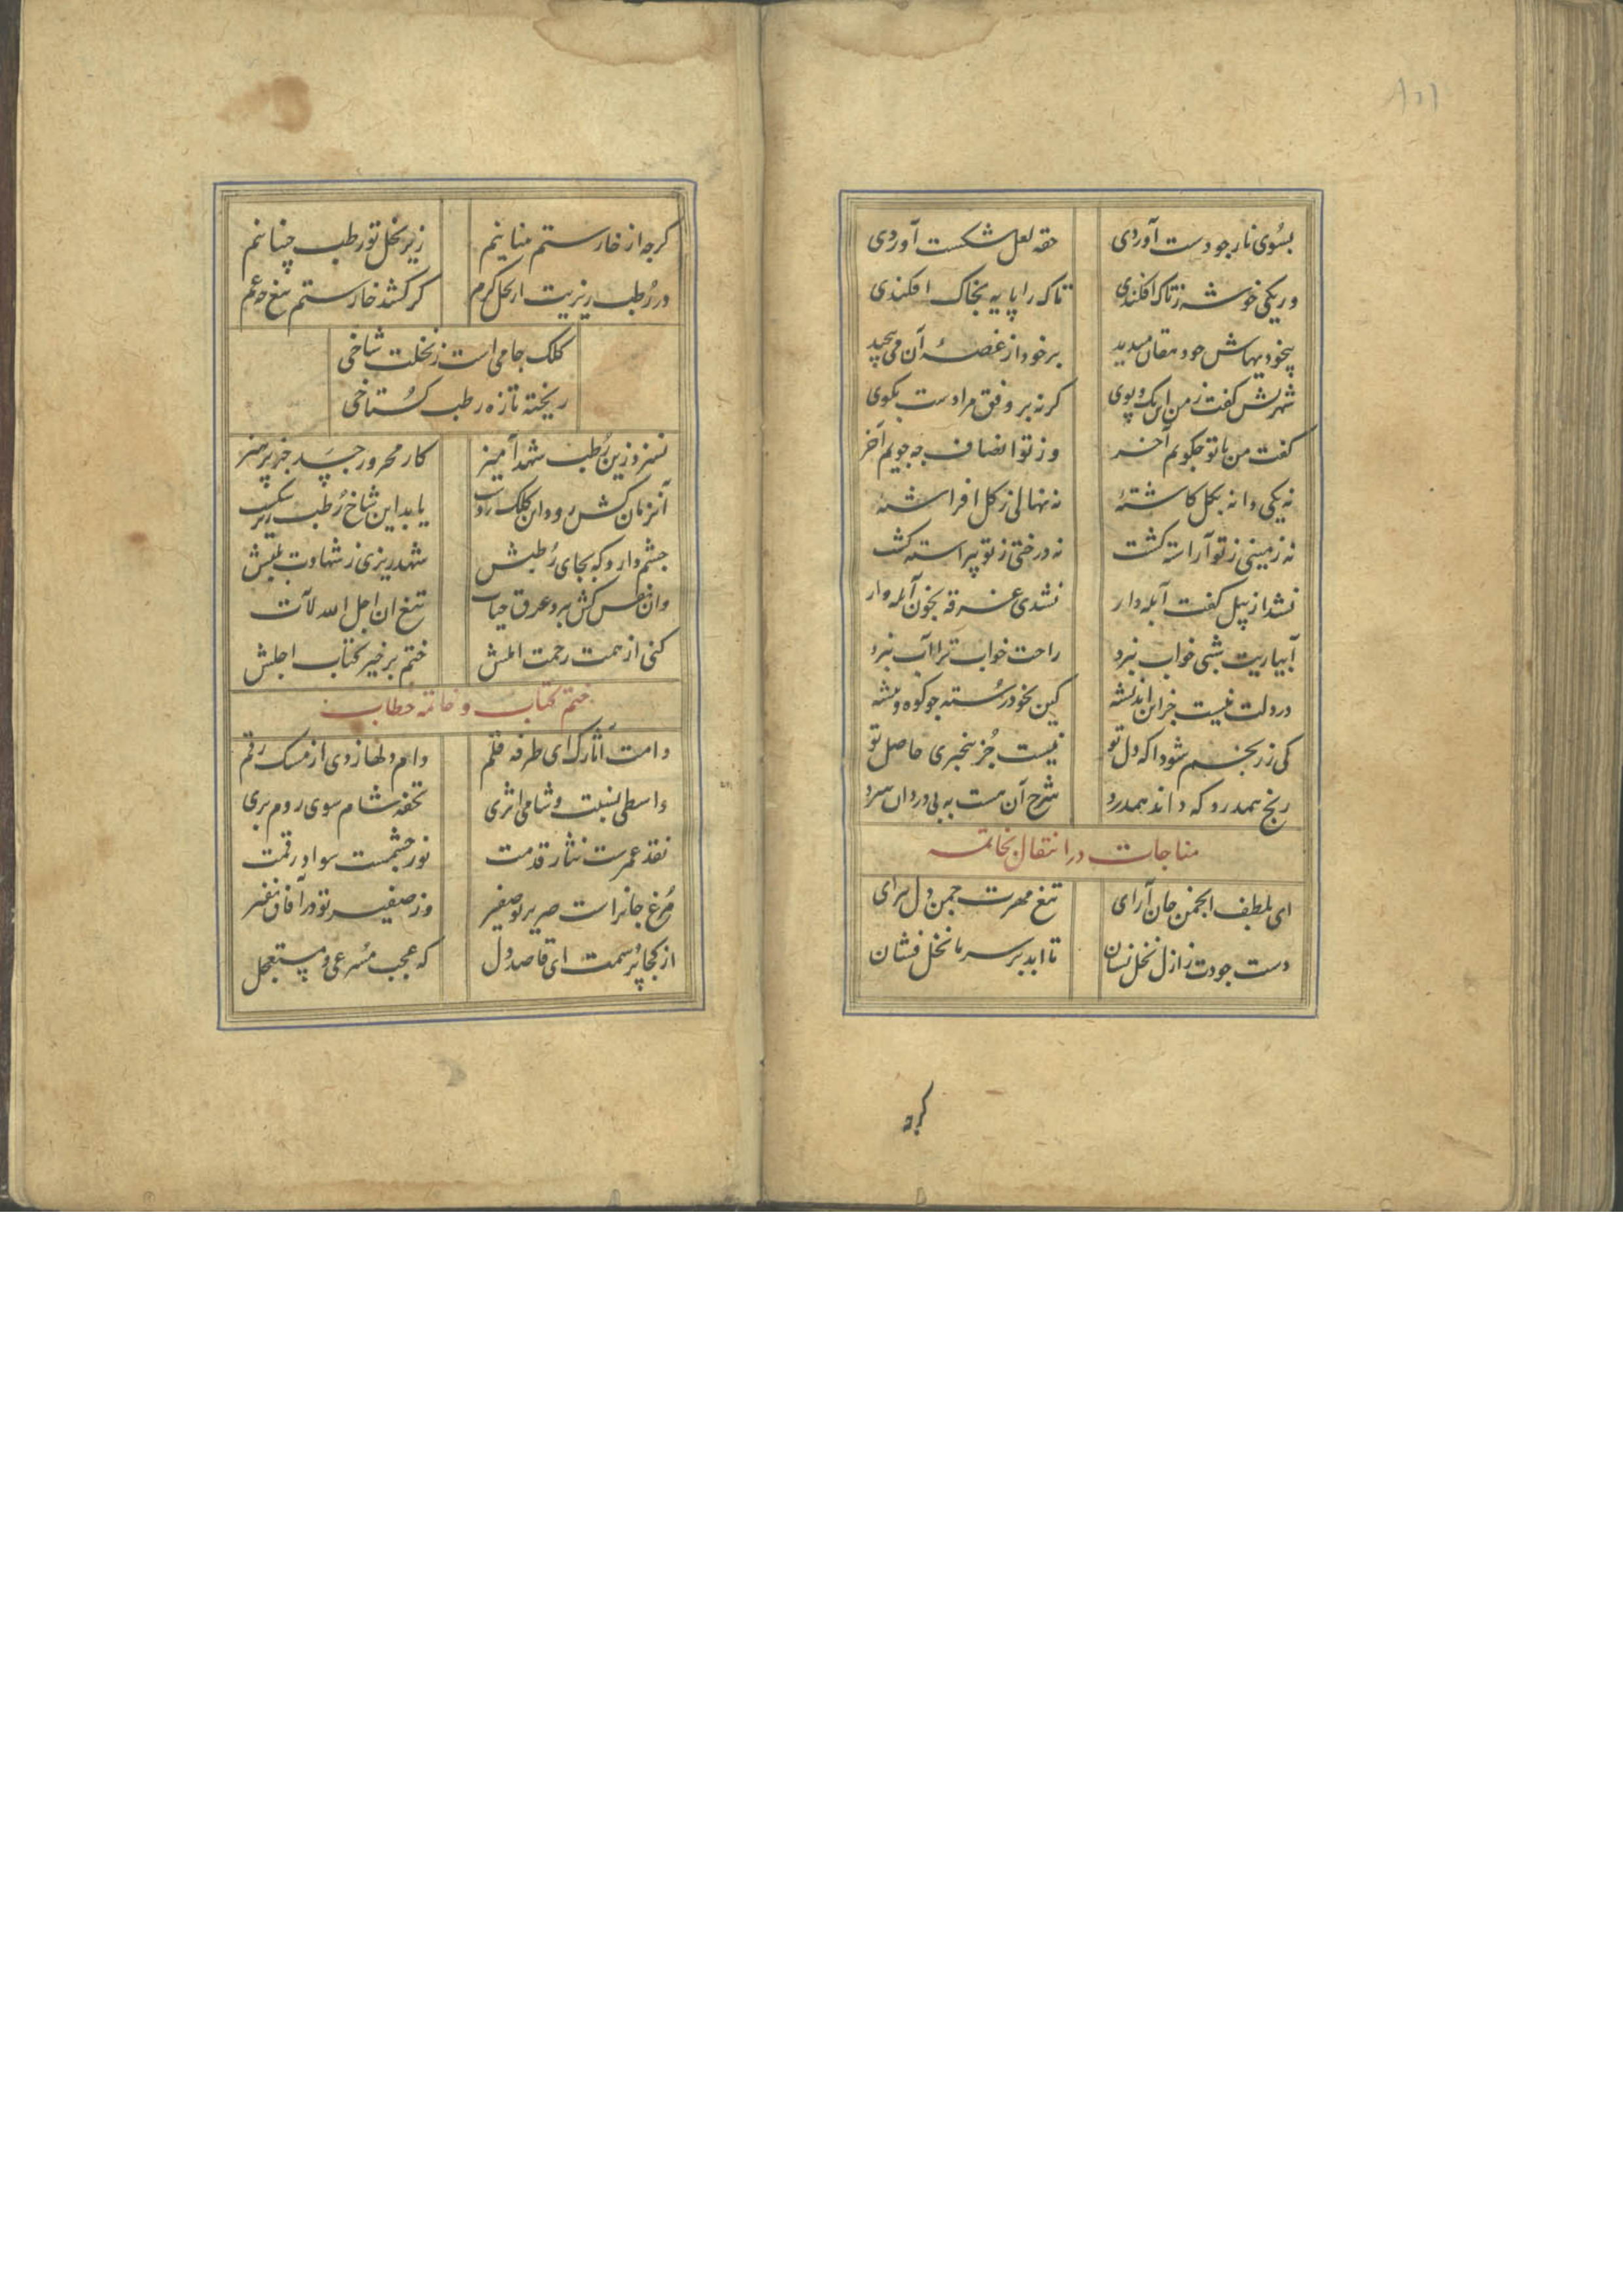 ۱۵۱
بسوی نار چو دست آوردی حقه لعل شکست آوردی
ور یکی خوشه ز تاک افکندی تاک را پایه بخاک افکندی
بیخودیهاش چو دهقان میدید بر خود از غصه آن می پیچید
شهریش گفت ز من این تک و پوی گر نه بر وفق مرادست بگوی
گفت من با تو چگویم آخر وز تو انصاف چه جویم آخر
نه یکی دانه بگل کاشتهٔ نه نهالی ز گل افراشتهٔ
نه زمینی ز تو آراسته گشت نه درختی ز تو پیراسته گشت
نشد از بیل کفت آبله دار نشدی غرقه بخون آبله وار
آبیاریت شبی خواب نبرد راحت خواب ترا آب نبرد
در دلت نیست جز این اندیشه کین بخود رسته چو کوه و بیشه
کی ز رنجم شود آگه دل تو نیست جز بیخبری حاصل تو
رنج همدرد که داند همدرد شرح آن هست به بی دردان سرد
مناجات در انتقال بخاتمه
ای بلطف انجمن جان آرای تیغ مهرت چمن دل پیرای
دست جودت ز ازل نخل نشان تا ابد بر سر ما نخل فشان
گرچه
گرچه از خار ستم منانیم زیر نخل تو رطب چینانیم
ور رطب ریزیت از نخل کرم گر کشد خار ستم تیغ چه غم
کلک جامی است ز نخلت شاخی
ریخته تازه رطب گستاخی
نسزد زین رطب شهد آمیز کار محرور جسد جز پرهیز
آنزمان کش رود این کلک ز دست یابد این شاخ رطب ریز شکست
چشم دارد که بجای رطبش شهد ریزی ز شهادت بلبش
وان نفس کش ببرد عرق حیات تیغ ان اجل الله لآت
کنی از همت رحمت املش ختم بر خیر کتاب اجلش
ختم کتاب و خاتمه خطاب
دامت آثارک ای طرفه قلم دام دلها زدی از مسک رقم
واسطی نسبت و شامی اثری تحفه شام سوی روم بری
نقد عمرست نثار قدمت نور چشمست سواد رقمت
مرغ جانراست صریر تو صفیر وز صفیر تو در آفاق نفیر
از کجا پرسمت ای قاصد دل که عجب مسرعی و مستعجل